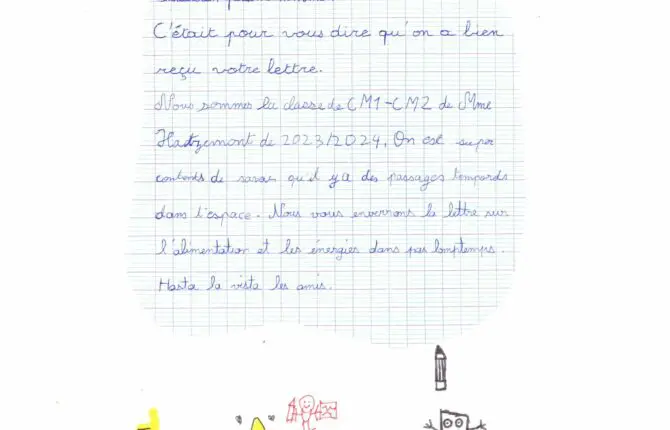 C'était pour vous dire qu'on a bien
reçu votre lettre.
Nous sommes la classe de CM1-CM2 de Mme
de 2023/2024. On est super
contents de savoir qu'il y a des passages
dans l'espace. Nous vous enverrons la lettre sur
l'alimentation et les énergies dans pas longtemps.
Hasta la vista les amis.